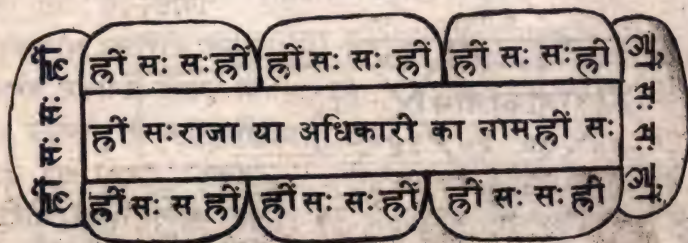 ह्रीं सः सः ह्रीं ह्रीं सः सः ह्रीं ह्रीं सः सः ह्रीं
ह्रीं सः सः ह्रीं
ह्रीं सः राजा या अधिकारी का नाम ह्रीं सः
ह्रीं सः सः ह्रीं
ह्रीं सः स ह्रीं ह्रीं सः सः ह्रीं ह्रीं सः सः ह्रीं